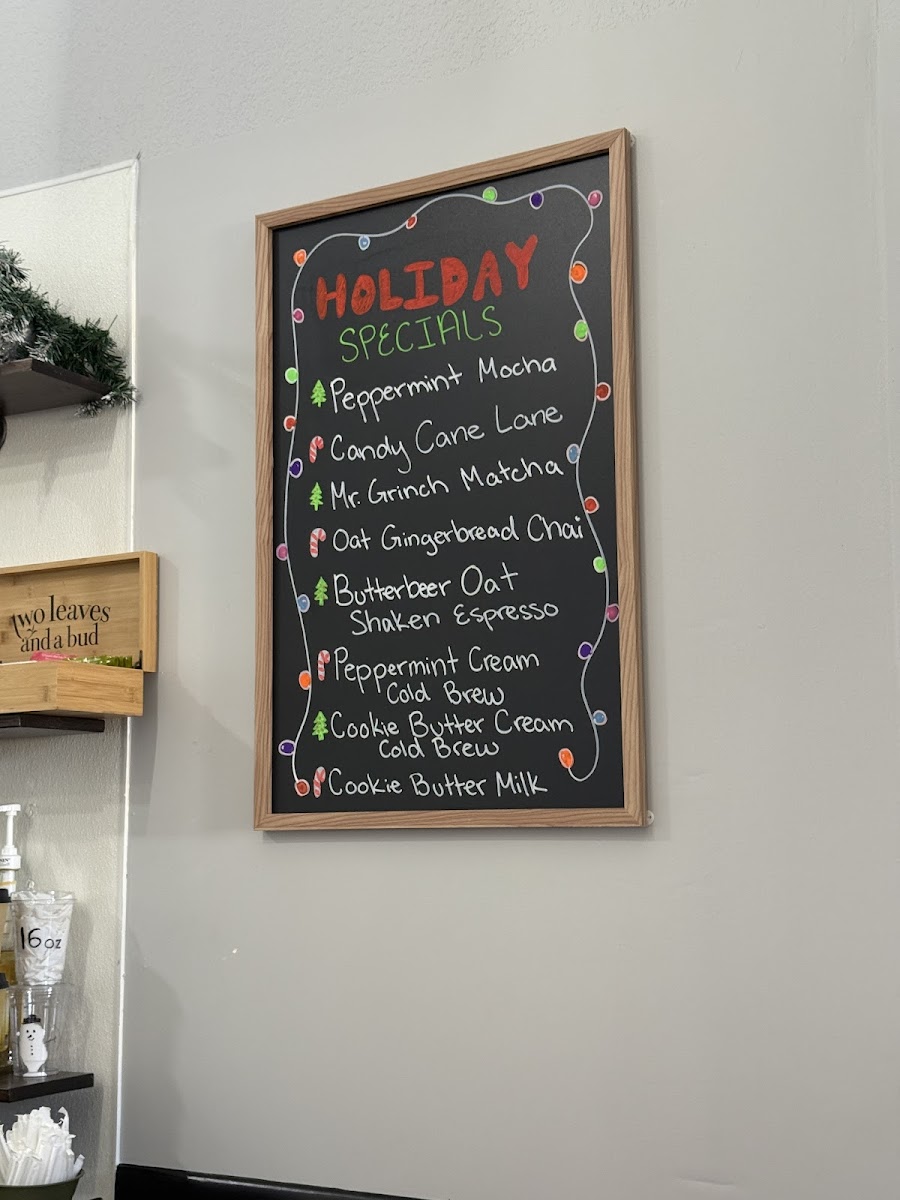 HOLIDAY
SPECIALS
Peppermint Mocha
Candy Cane Lane
Mr. Grinch Matcha
Oat Gingerbread Chai
Butterbeer Oat
Shaken Espresso
Peppermint Cream
Cold Brew
Cookie Butter Cream
Cold Brew
Cookie Butter Milk
two leaves
and a bud
16oz